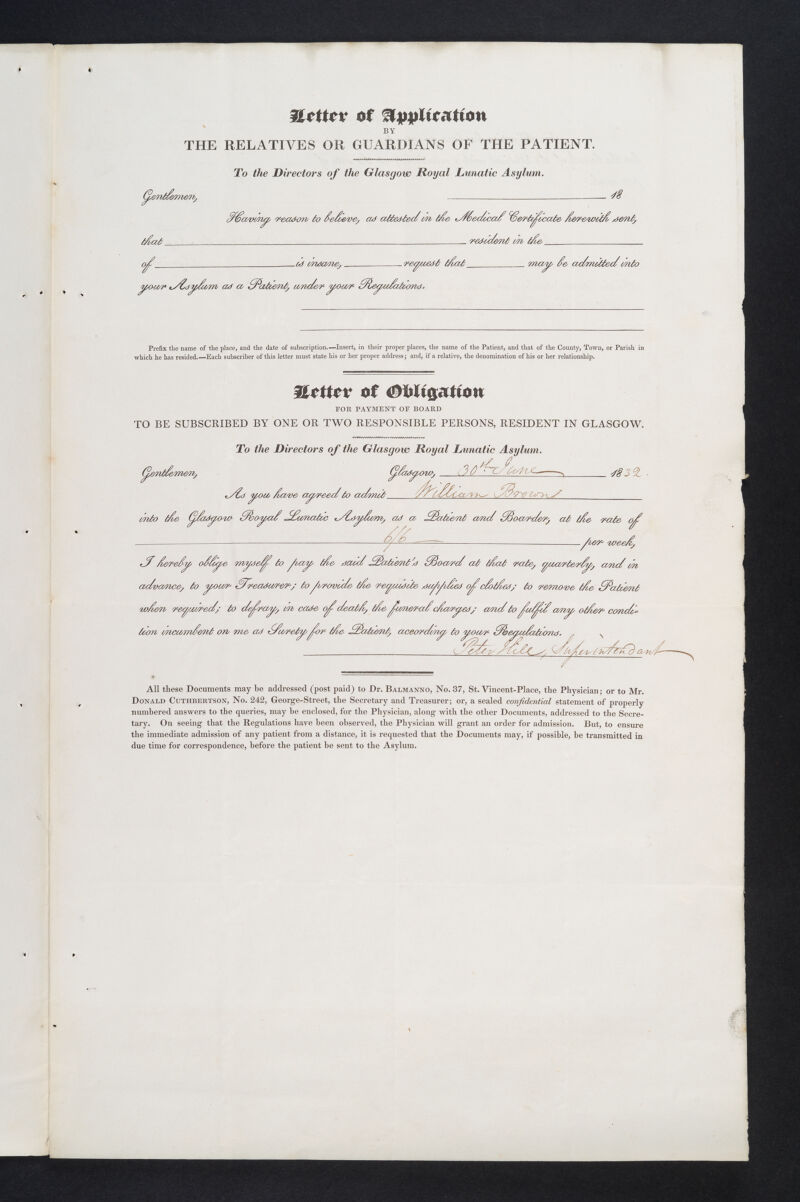 Letter of Application
BY
THE RELATIVES OR GUARDIANS OF THE PATIENT.
To the Directors of the Glasgow Royal Lunatic Asylum.
Gentlemen, 18
Having reason to believe, as attested in the Medical Certificate herewith sent,
that resident in the
of is insane, request that may be admitted into
your Asylum as a Patient, under your Regulations.
Prefix the name of the place, and the date of subscription.—Insert, in their proper places, the name of the Patient, and that of the County, Town, or Parish in
which he has resided.—Each subscriber of this letter must state his or her proper address; and, if a relative, the denomination of his or her relationship.
Letter of Obligation
FOR PAYMENT OF BOARD
TO BE SUBSCRIBED BY ONE OR TWO RESPONSIBLE PERSONS, RESIDENT IN GLASGOW.
To the Directors of the Glasgow Royal Lunatic Asylum.
Gentlemen, Glasgow, 30th June 1832.
As you have agreed to admit William Brown
into the Glasgow Royal Lunatic Asylum, as a Patient and Boarder, at the rate of
6/6 per week,
I hereby oblige myself to pay the said Patient's Board at that rate, quarterly, and in
advance, to your Treasurer; to provide the requisite supplies of clothes; to remove the Patient
when required; to defray, in case of death, the funeral charges; and to fulfil any other condi-
tion incumbent on me as Surety for the Patient, according to your Regulations.
Peter Hill, Superintendant
All these Documents may be addressed (post paid) to Dr. BALMANNO, No. 37, St. Vincent-Place, the Physician; or to Mr.
DONALD CUTHBERTSON, No. 242, George-Street, the Secretary and Treasurer; or, a sealed confidential statement of properly
numbered answers to the queries, may be enclosed, for the Physician, along with the other Documents, addressed to the Secre-
tary. On seeing that the Regulations have been observed, the Physician will grant an order for admission. But, to ensure
the immediate admission of any patient from a distance, it is requested that the Documents may, if possible, be transmitted in
due time for correspondence, before the patient be sent to the Asylum.